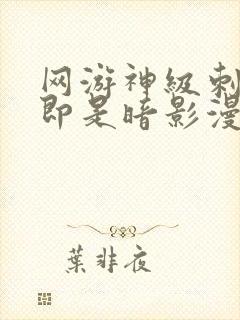 网游神级刺
即是暗影漫
葉非夜